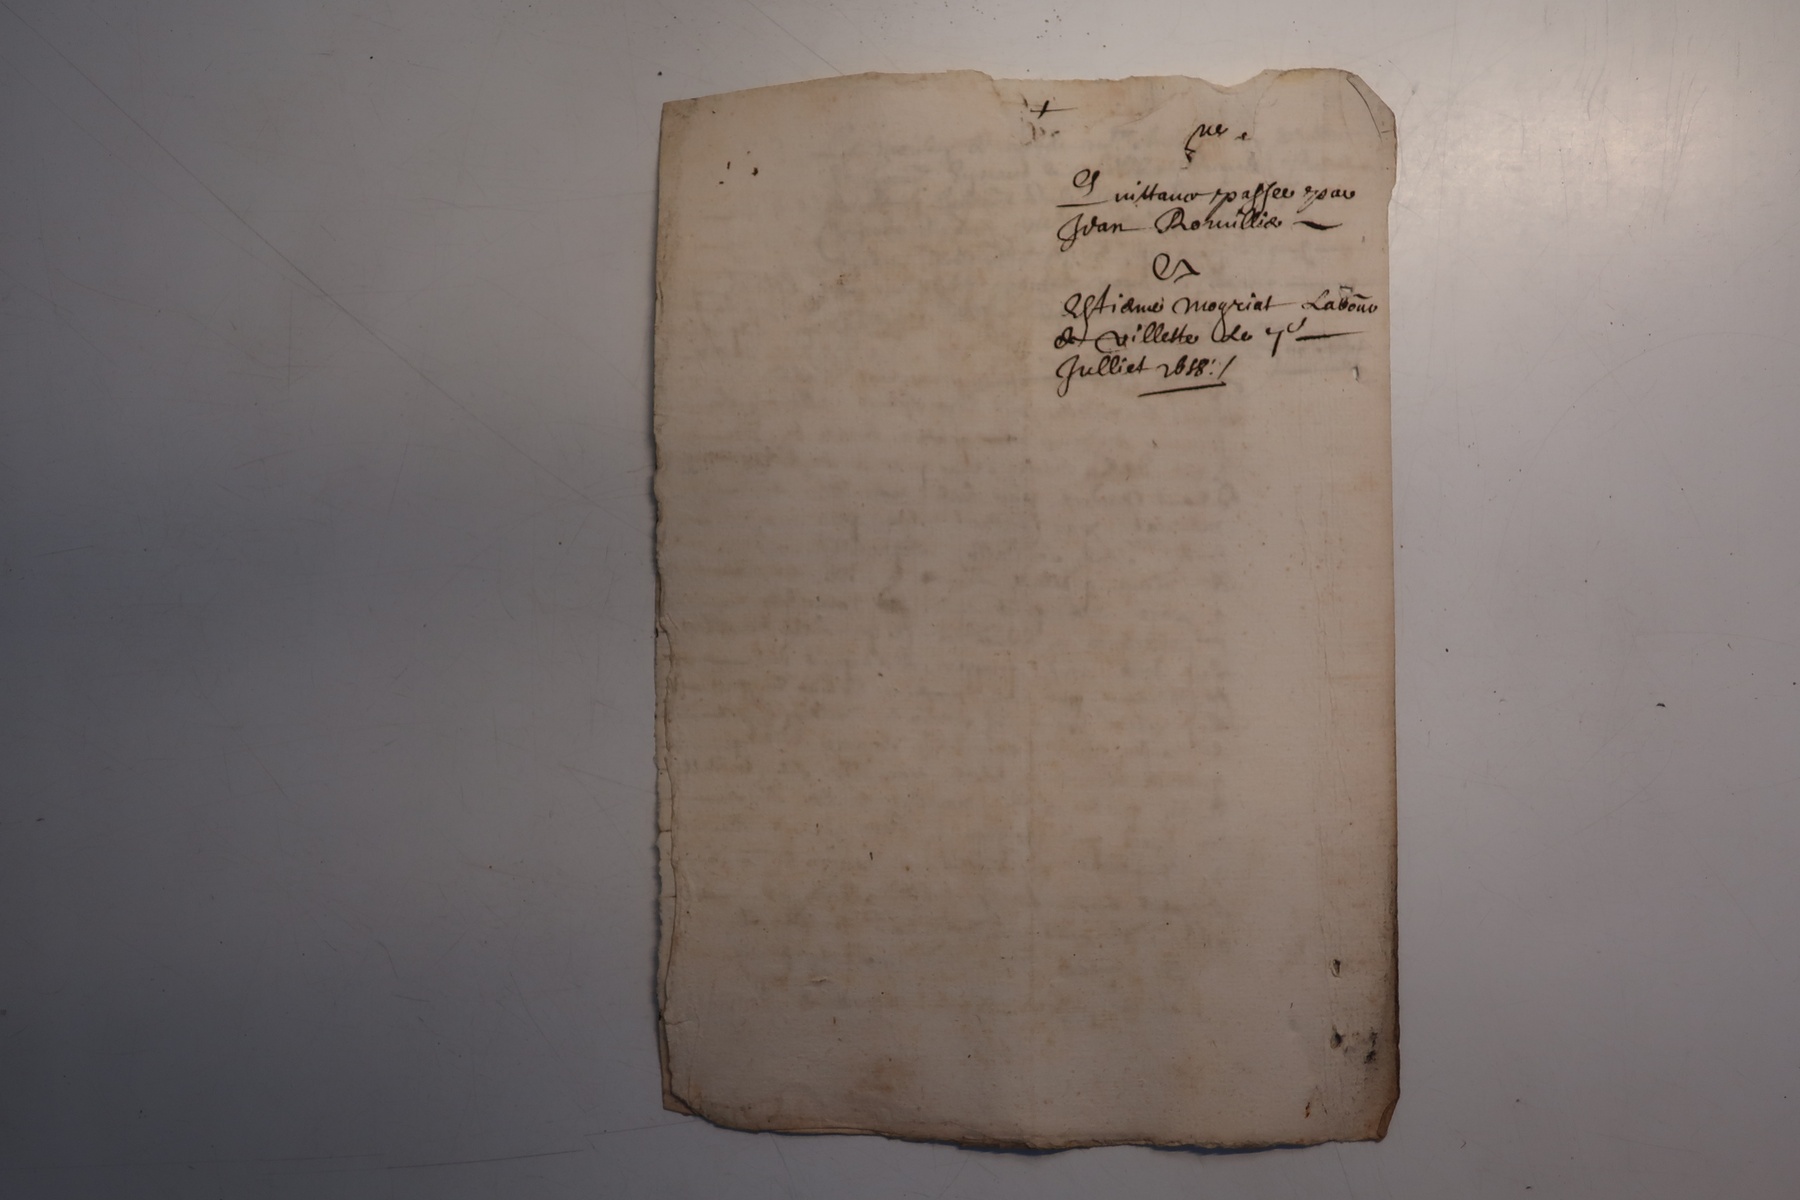 Quittance passee par
Jean Rouillie
A
Estiene Moyriat Labour
de Villette de 7e
Julliet 1658